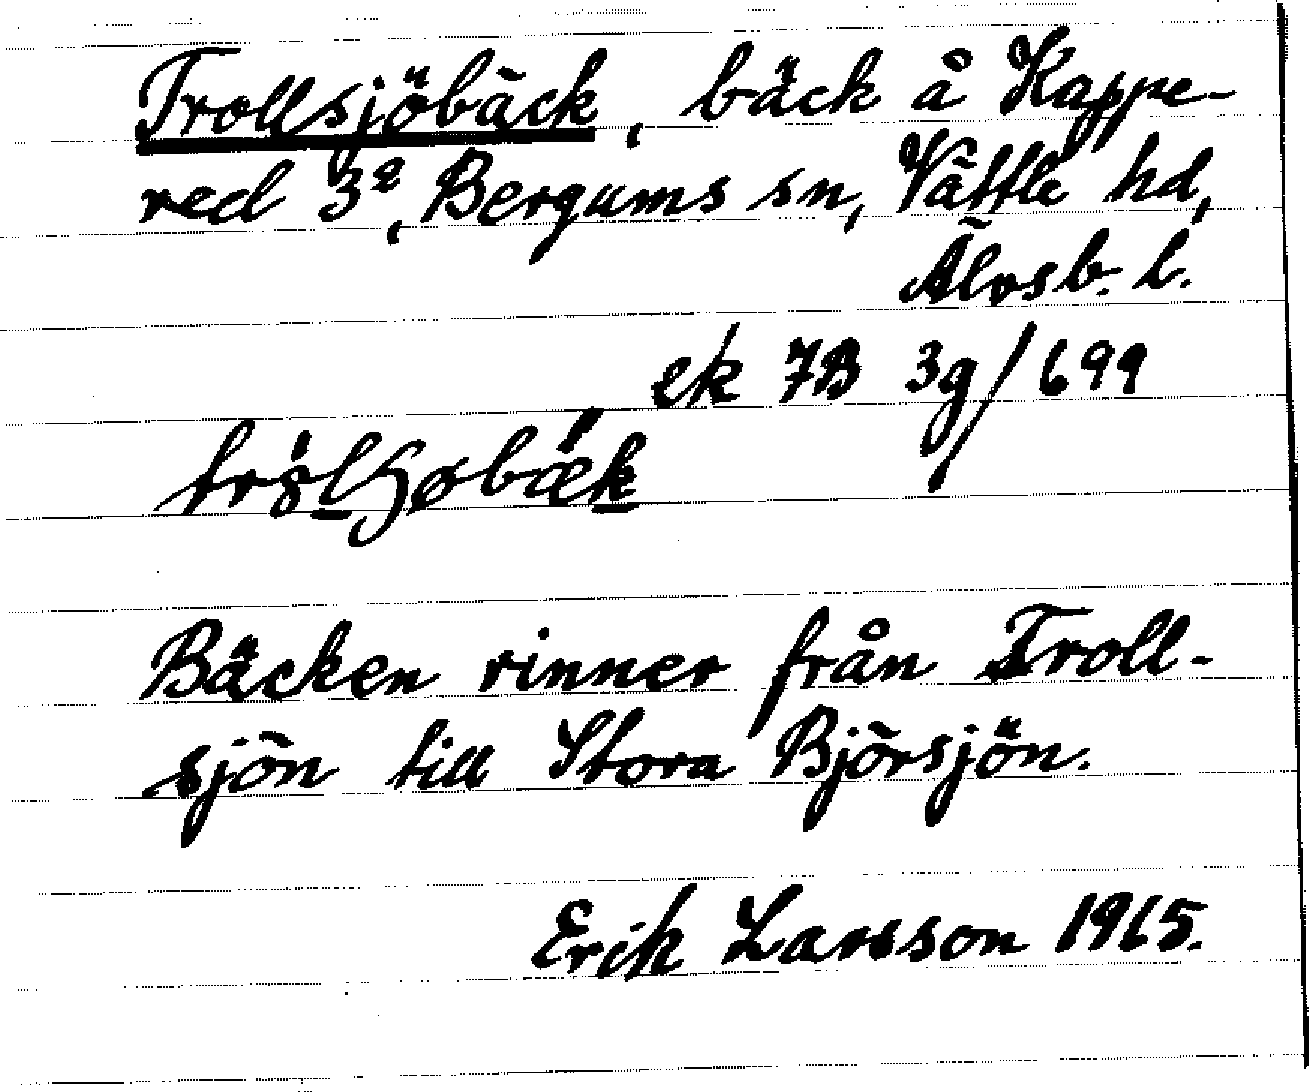 Trollsjöbäck, bäck å Kappe-
red 3², Bergums sn, Vättle hd,
Älvsb. l.
ek 7B 3g/699
Bäcken rinner från Troll-
sjön till Stora Björsjön.
Erik Larsson 1965.